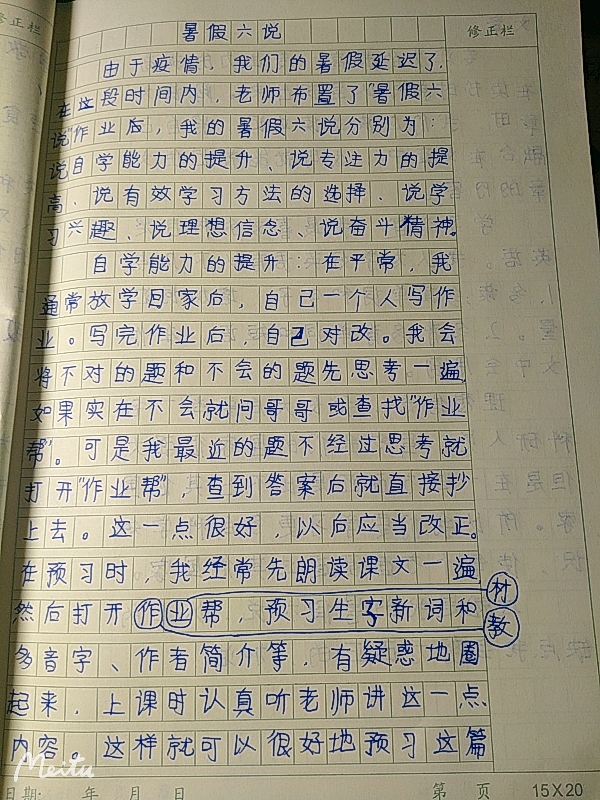 修正栏
修正栏
暑假六说
由于疫情,我们的暑假延迟了,
在这段时间内,老师布置了"暑假六
说"作业后,我的暑假六说分别为:
说自学能力的提升、说专注力的提
高、说有效学习方法的选择、说学
习兴趣、说理想信念、说奋斗精神。
自学能力的提升:在平常,我
通常放学回家后,自己一个人写作
业。写完作业后,自己对改。我会
将不对的题和不会的题先思考一遍,
如果实在不会就问哥哥或查找"作业
帮"。可是我最近的题不经过思考就
打开"作业帮",查到答案后就直接抄
上去。这一点很好,以后应当改正。
在预习时,我经常先朗读课文一遍
然后打开作业帮,预习生字新词和
材
教
多音字、作者简介等,有疑惑地圈
起来,上课时认真听老师讲这一点
内容。这样就可以很好地预习这篇
Meitu
日期: 年 月 日 第 页 15×20